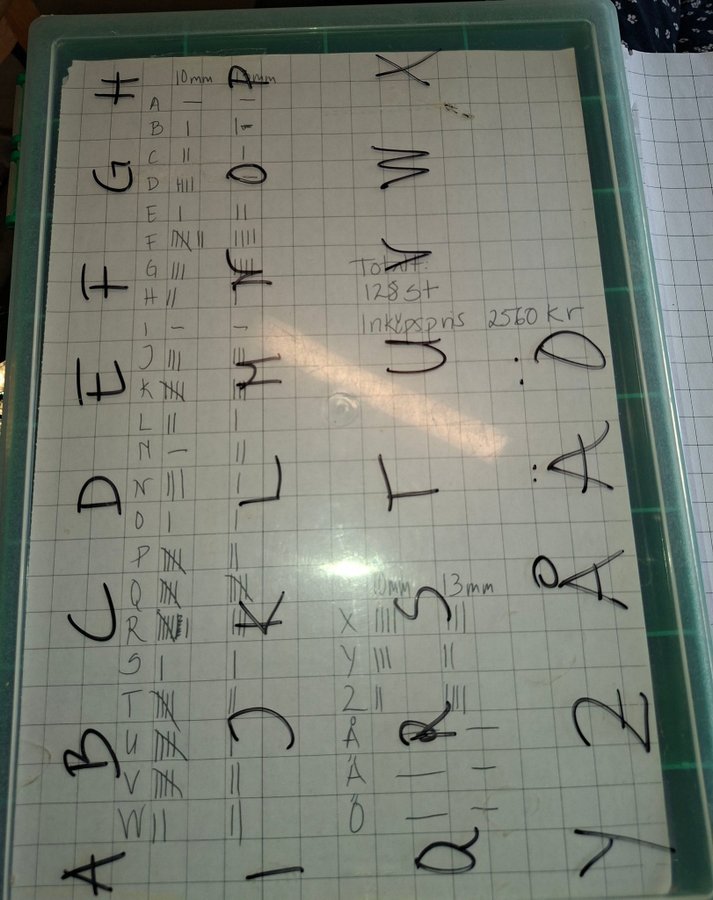 A B C D E F G H
I J K L M N O P
Q R S T U V W X
Y Z Å Ä Ö
10mm
A — —
B | |
C || |
D ||||
E | ||
F |||| || ||||
G |||
H || |
I — —
J |||
K ||||
L || |
M — ||
N ||| |
O | |
P |||| ||
Q |||| ||||
R
S | |
T |||| ||
U ||||
V |||| ||
W || ||
Totalt:
128 st
Inköpspris 2560 kr
10mm 13mm
X |||| ||
Y ||| ||
Z || ||||
Å —
Ä — —
Ö — —